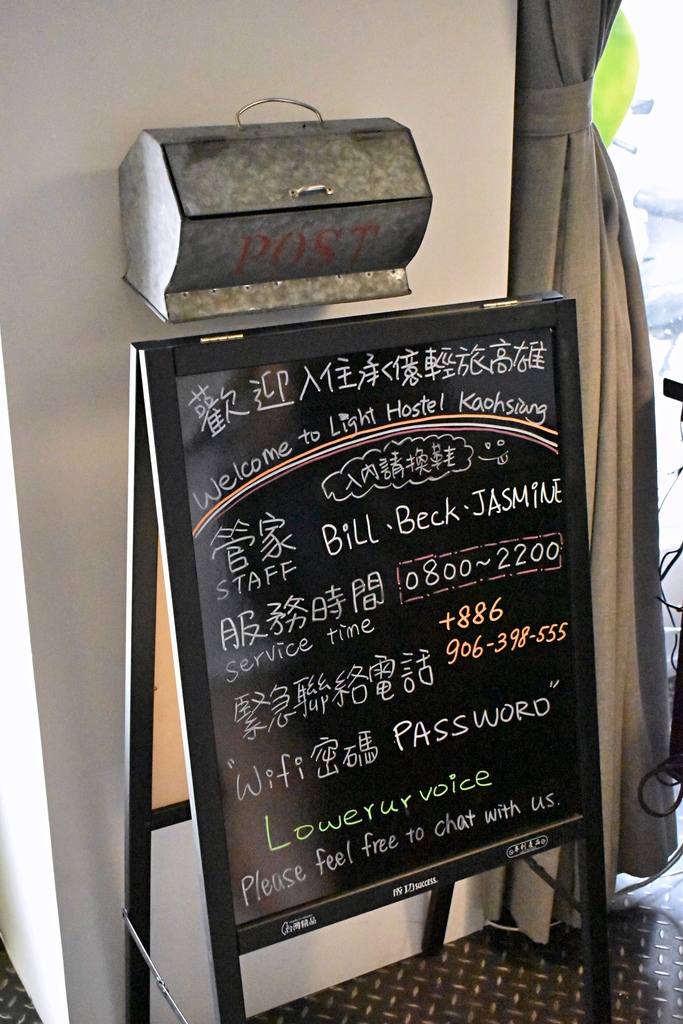 POST
歡迎入住承億輕旅高雄
Welcome to Light Hostel Kaohsiung
入內請換鞋
管家 Bill、Beck、JASMINE
STAFF
服務時間 0800~2200
service time
緊急聯絡電話 +886
906-398-555
"Wifi 密碼 PASSWORD"
Lowerur voice
Please feel free to chat with us.
成功 success.
台灣精品
專利產品